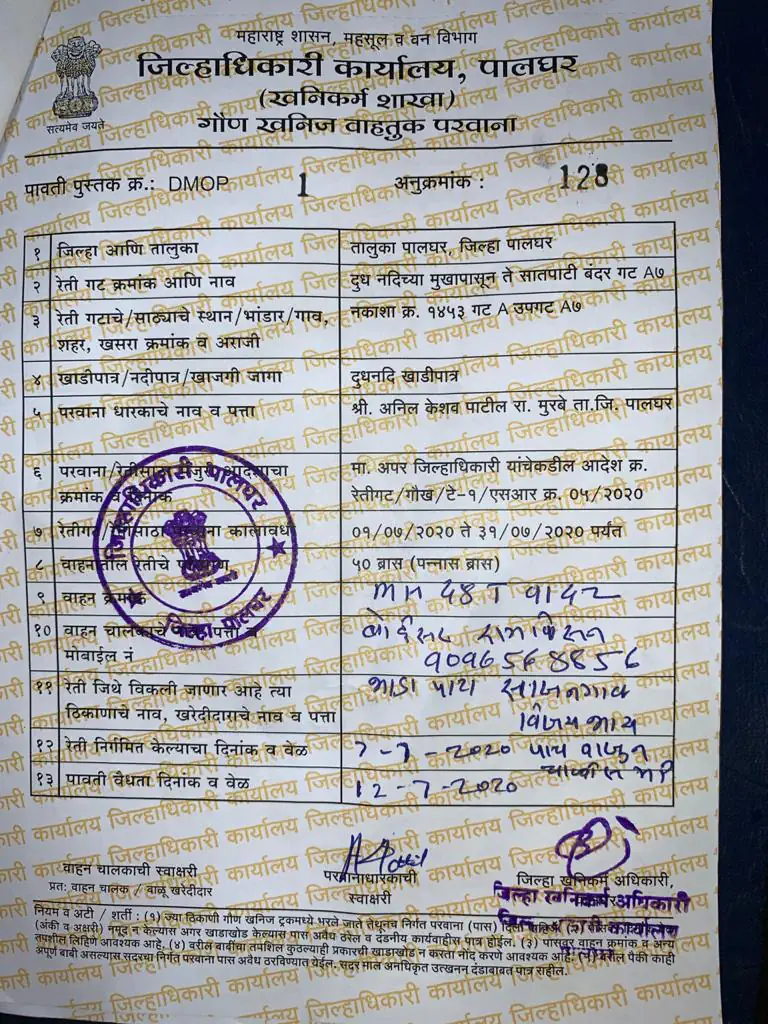 महाराष्ट्र शासन, महसूल व वन विभाग
जिल्हाधिकारी कार्यालय, पालघर
(खनिकर्म शाखा)
गौण खनिज वाहतुक परवाना
सत्यमेव जयते
पावती पुस्तक क्र.: DMOP 1 अनुक्रमांक : 128
१ जिल्हा आणि तालुका तालुका पालघर, जिल्हा पालघर
२ रेती गट क्रमांक आणि नाव दुध नदिच्या मुखापासून ते सातपाटी बंदर गट A७
३ रेती गटाचे/साठ्याचे स्थान/भांडार/गाव, नकाशा क्र. १४५३ गट A उपगट A७
शहर, खसरा क्रमांक व अराजी
४ खाडीपात्र/नदीपात्र/खाजगी जागा दुधनदि खाडीपात्र
५ परवाना धारकाचे नाव व पत्ता श्री. अनिल केशव पाटील रा. मुरबे ता.जि. पालघर
६ परवाना/रेतीसाठा मंजुरी आदेशाचा मा. अपर जिल्हाधिकारी यांचेकडील आदेश क्र.
क्रमांक व दिनांक रेतीगट/गौख/टे-१/एसआर क्र. ०५/२०२०
७ रेतीगट परवाना कालावधी ०१/०७/२०२० ते ३१/०७/२०२० पर्यंत
८ वाहनातील रेतीचे परिमाण ५० ब्रास (पन्नास ब्रास)
९ वाहन क्रमांक MH 48 T
१० वाहन चालकाचे पत्ता व बोईसर
मोबाईल नं 9096568856
११ रेती जिथे विकली जाणार आहे त्या
ठिकाणाचे नाव, खरेदीदाराचे नाव व पत्ता विजय भाय
१२ रेती निर्गमित केल्याचा दिनांक व वेळ 7-7-2020 पाच वाजून
१३ पावती वैधता दिनांक व वेळ 12-7-2020
जिल्हाधिकारी पालघर
जिल्हा पालघर
वाहन चालकाची स्वाक्षरी परवानाधारकाची जिल्हा खनिकर्म अधिकारी,
प्रत: वाहन चालक / वाळू खरेदीदार स्वाक्षरी
जिल्हा खनिकर्म अधिकारी
जिल्हाधिकारी कार्यालय
पालघर
नियम व अटी / शर्ती : (१) ज्या ठिकाणी गौण खनिज ट्रकमध्ये भरले जाते तेथूनच निर्गत परवाना (पास) दिला
(अंकी व अक्षरी) नमूद न केल्यास अगर खाडाखोड केल्यास पास अवैध ठरेल व दंडनीय कार्यवाहीस पात्र होईल. (३) पासवर वाहन क्रमांक व अन्य
तपशील लिहिणे आवश्यक आहे. (४) वरील बाबींचा तपशिल कुठल्याही प्रकारची खाडाखोड न करता नोंद करणे आवश्यक आहे. वरील पैकी काही
अपूर्ण बाबी असल्यास सदरचा निर्गत परवाना पास अवैध ठरविण्यात येईल. सदर माल अनधिकृत उत्खनन दंडाबाबत पात्र राहील.